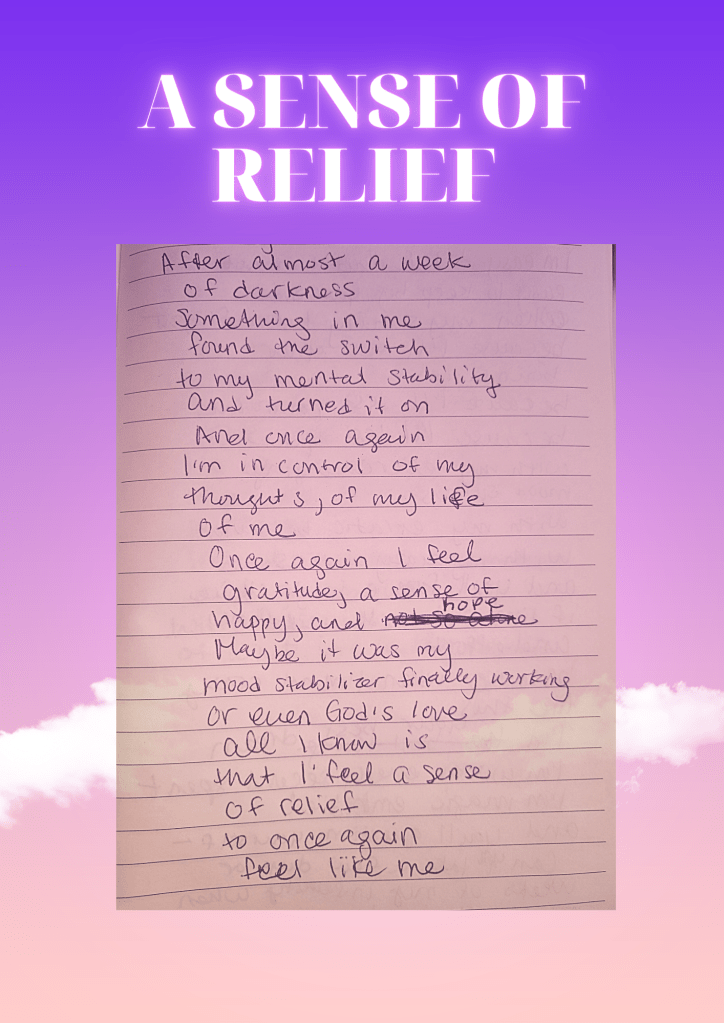 A SENSE OF
RELIEF
After almost a week
of darkness
Something in me
found the switch
to my mental stability
and turned it on
And once again
I'm in control of my
thoughts, of my life
of me
Once again I feel
gratitude, a sense of
hope
happy, and not so alone
Maybe it was my
mood stabilizer finally working
or even God's love
all I know is
that I feel a sense
of relief
to once again
feel like me